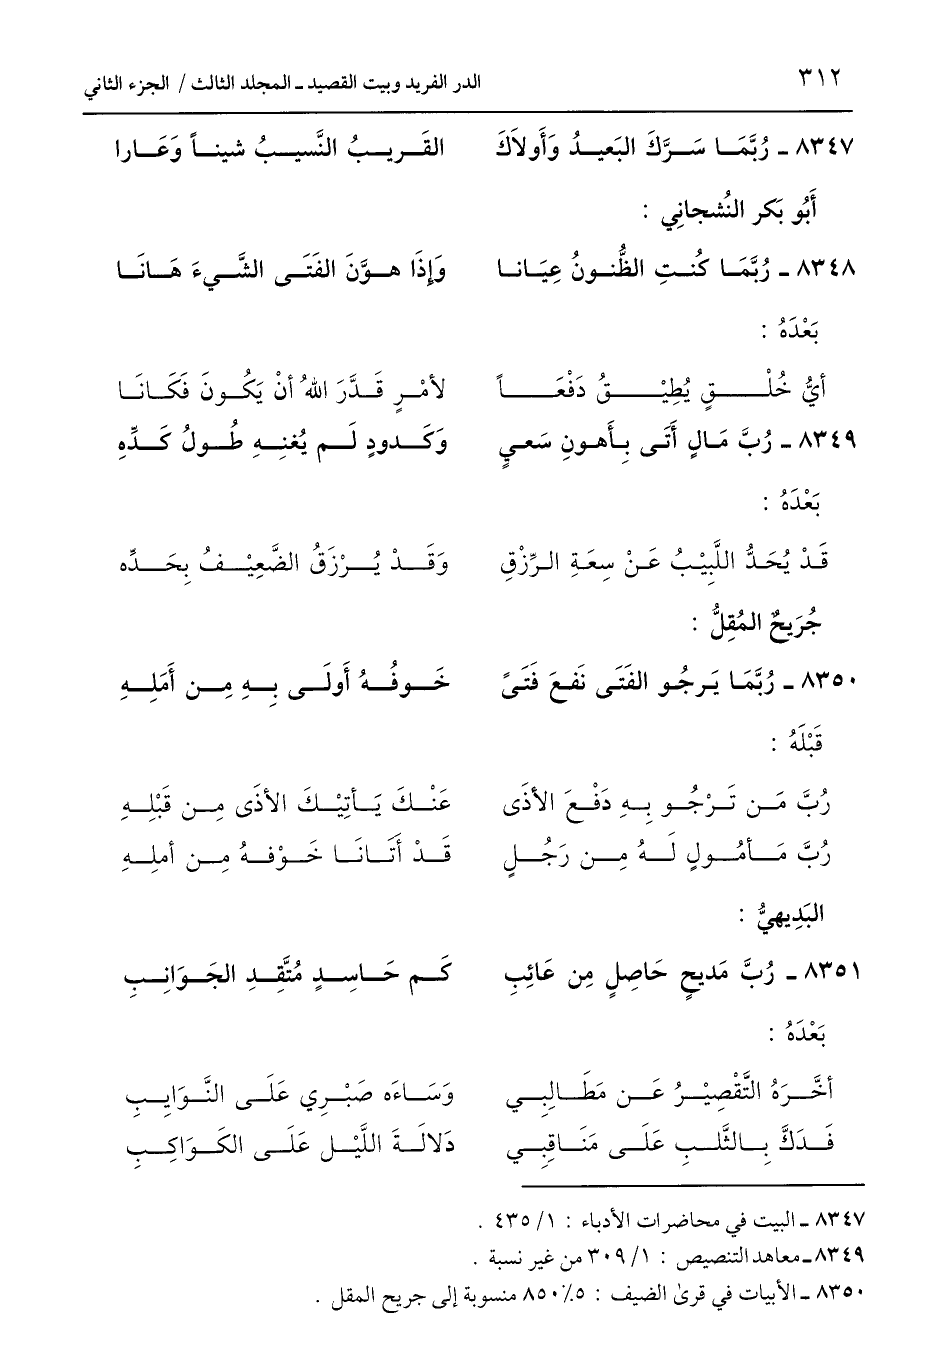 ٣١٢ الدر الفريد وبيت القصيد ـ المجلد الثالث / الجزء الثاني
٨٣٤٧ ـ رُبَّمَا سَرَّكَ البَعيدُ وَأَولاَكَ القَريبُ النَّسيبُ شيناً وَعَارا
أَبُو بَكر النُشجانِي :
٨٣٤٨ ـ رُبَّمَا كُنتِ الظُّنونُ عِيَانا وَإِذَا هوَّنَ الفَتَى الشَّيءَ هَانَا
بَعْدَهُ :
أيُّ خُلْقٍ يُطِيْقُ دَفْعَاً لأمْرٍ قَدَّرَ اللهُ أنْ يَكُونَ فَكَانَا
٨٣٤٩ ـ رُبَّ مَالٍ أَتَى بِأَهونِ سَعيٍ وَكَدودٍ لَم يُغنِهِ طُولُ كَدِّهِ
بَعْدَهُ :
قَدْ يُحَدُّ اللَّبِيْبُ عَنْ سِعَةِ الرِّزْقِ وَقَدْ يُرْزَقُ الضَّعِيْفُ بِحَدِّه
جُرَيحٌ المُقِلُّ :
٨٣٥٠ ـ رُبَّمَا يَرجُو الفَتَى نَفعَ فَتىً خَوفُهُ أَولَى بِهِ مِن أَمَلِهِ
قَبْلَهُ :
رُبَّ مَن تَرْجُو بِهِ دَفْعَ الأذَى عَنْكَ يَأتِيْكَ الأذَى مِن قَبْلِهِ
رُبَّ مَأمُولٍ لَهُ مِن رَجُلٍ قَدْ أَتَانَا خَوْفهُ مِن أملِهِ
البَدِيهيُّ :
٨٣٥١ ـ رُبَّ مَديحٍ حَاصِلٍ مِن عَائِبِ كَم حَاسِدٍ مُتَّقِدِ الجَوَانِبِ
بَعْدَهُ :
أخَّرَهُ التَّقْصِيْرُ عَن مَطَالِبِي وَسَاءَه صَبْرِي عَلَى النَّوَايِبِ
فَدَلَّ بِالثَّلبِ عَلَى مَنَاقِبِي دَلالَةَ اللَّيْلِ عَلَى الكَوَاكِبِ
٨٣٤٧ ـ البيت في محاضرات الأدباء : ١/ ٤٣٥ .
٨٣٤٩ـ معاهد التنصيص : ١/ ٣٠٩ من غير نسبة .
٨٣٥٠ ـ الأبيات في قرىٰ الضيف : ٥٪ ٨٥٠ منسوبة إلى جريح المقل .